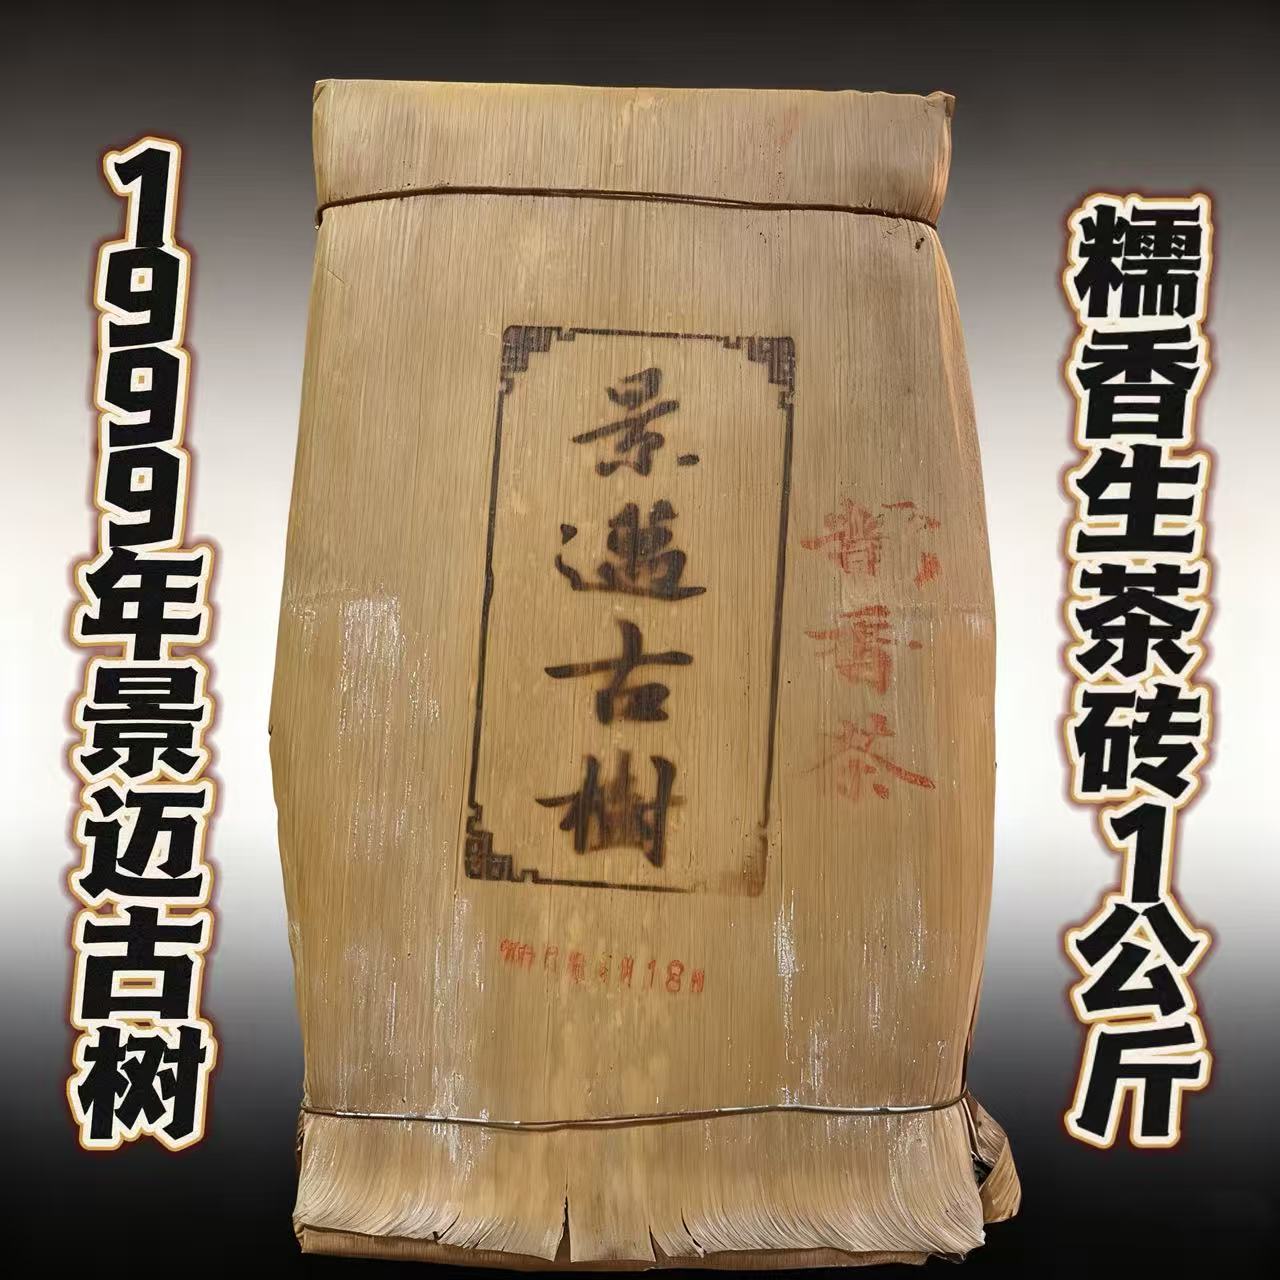 1999年景迈古树
景邁古樹
香茶
18
糯香生茶砖1公斤